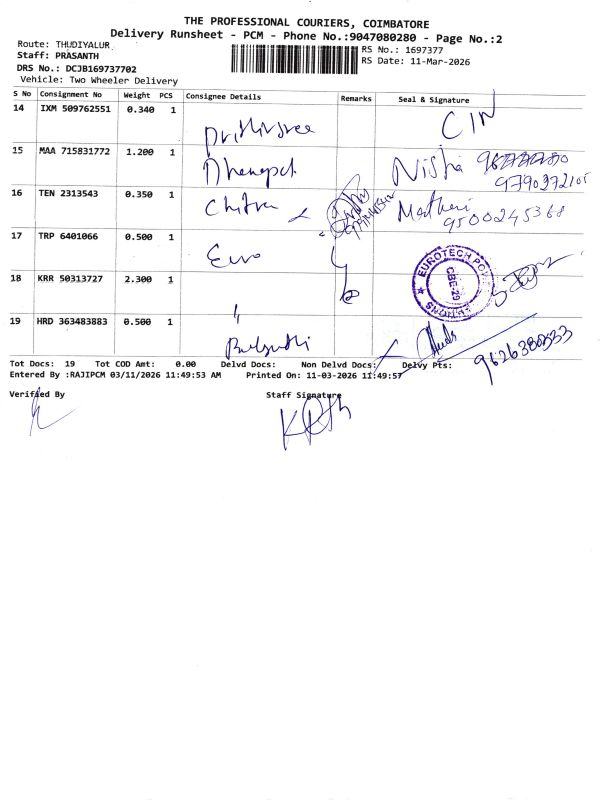 THE PROFESSIONAL COURIERS, COIMBATORE
Delivery Runsheet - PCM - Phone No.:9047080280 - Page No.:2
Route: THUDIYALUR
Staff: PRASANTH
DRS No.: DCJB169737702
Vehicle: Two Wheeler Delivery
RS No.: 1697377
RS Date: 11-Mar-2026
S No Consignment No Weight PCS Consignee Details Remarks Seal & Signature
14 IXM 509762551 0.340 1 Prithisree CIN
15 MAA 715831772 1.200 1 Dhanapal Nisha 9790372105
16 TEN 2313543 0.350 1 Chitra 9500245368
17 TRP 6401066 0.500 1 Euro
18 KRR 50313727 2.300 1 "
EUROTECH CBE-29
19 HRD 363483883 0.500 1
Tot Docs: 19 Tot COD Amt: 0.00 Delvd Docs: Non Delvd Docs: Delvy Pts:
Entered By :RAJIPCM 03/11/2026 11:49:53 AM Printed On: 11-03-2026 11:49:57
Verified By Staff Signature